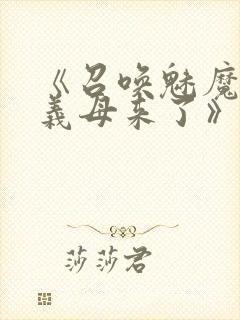 《召唤魅魔
义母来了》
莎莎君